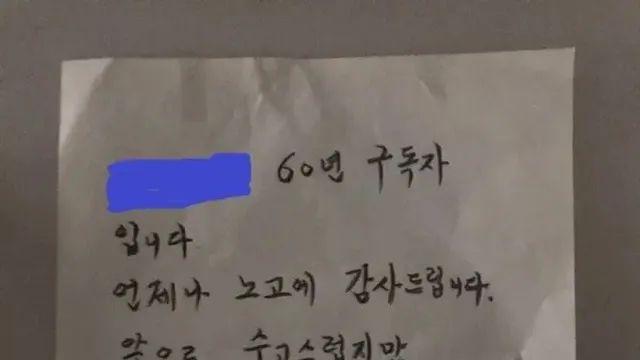 60년 구독자
입니다
언제나 노고에 감사드립니다.
앞으로 수고스럽지만